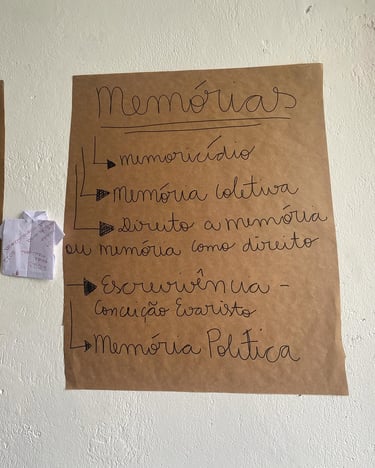 Memórias
memoricídio
Memória coletiva
Direito a memória
ou memória como direito
Escrevivência -
Conceição Evaristo
Memória Política